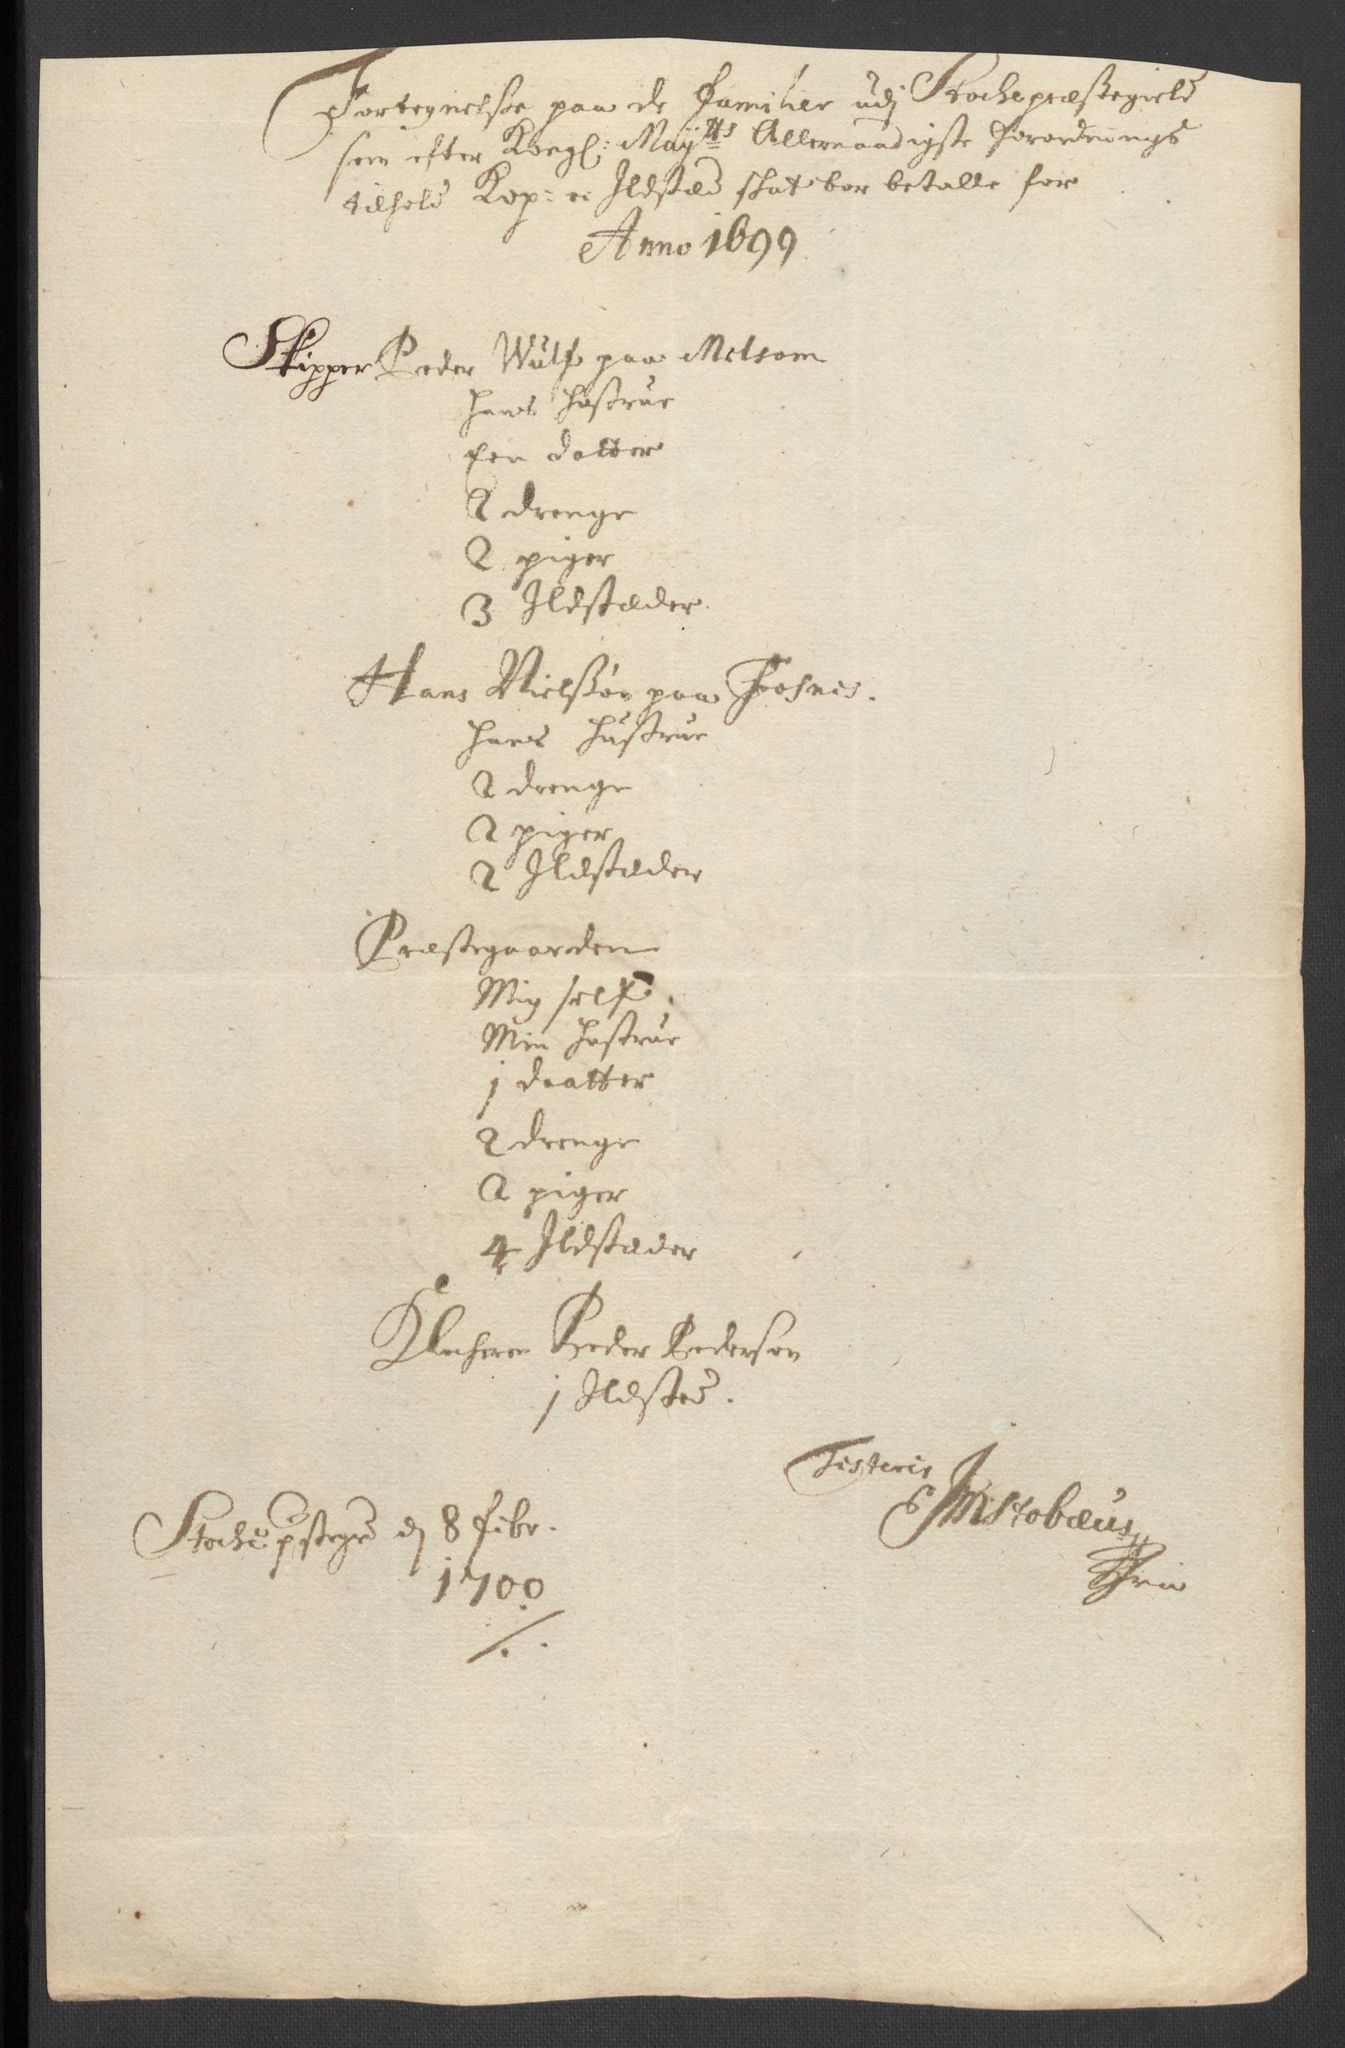 Fortegnelse paa de Familier udj Stochepræstegield
som efter Kongl: Maÿtts Allernaadigste forordnings
tilhold Kop: oc Ildsted skat bør betalle for
Anno 1699
Skipper Peder Wulf paa Melsom
hans hustrue
Een datter
2 drenge
2 piger
3 Ildstæder
Hans Nielssøn paa Fosnes.
hans hustrue
2 drenge
2 piger
2 Ildstæder
Præstegaarden
Mig self
Min hustrue
1 daatter
2 drenge
2 piger
4 Ildstæder
Klocheren Peder Pedersøn
1 Ildsted.
Testerer
Stobæus
Stoche pstegrd d 8 Febr.
1700